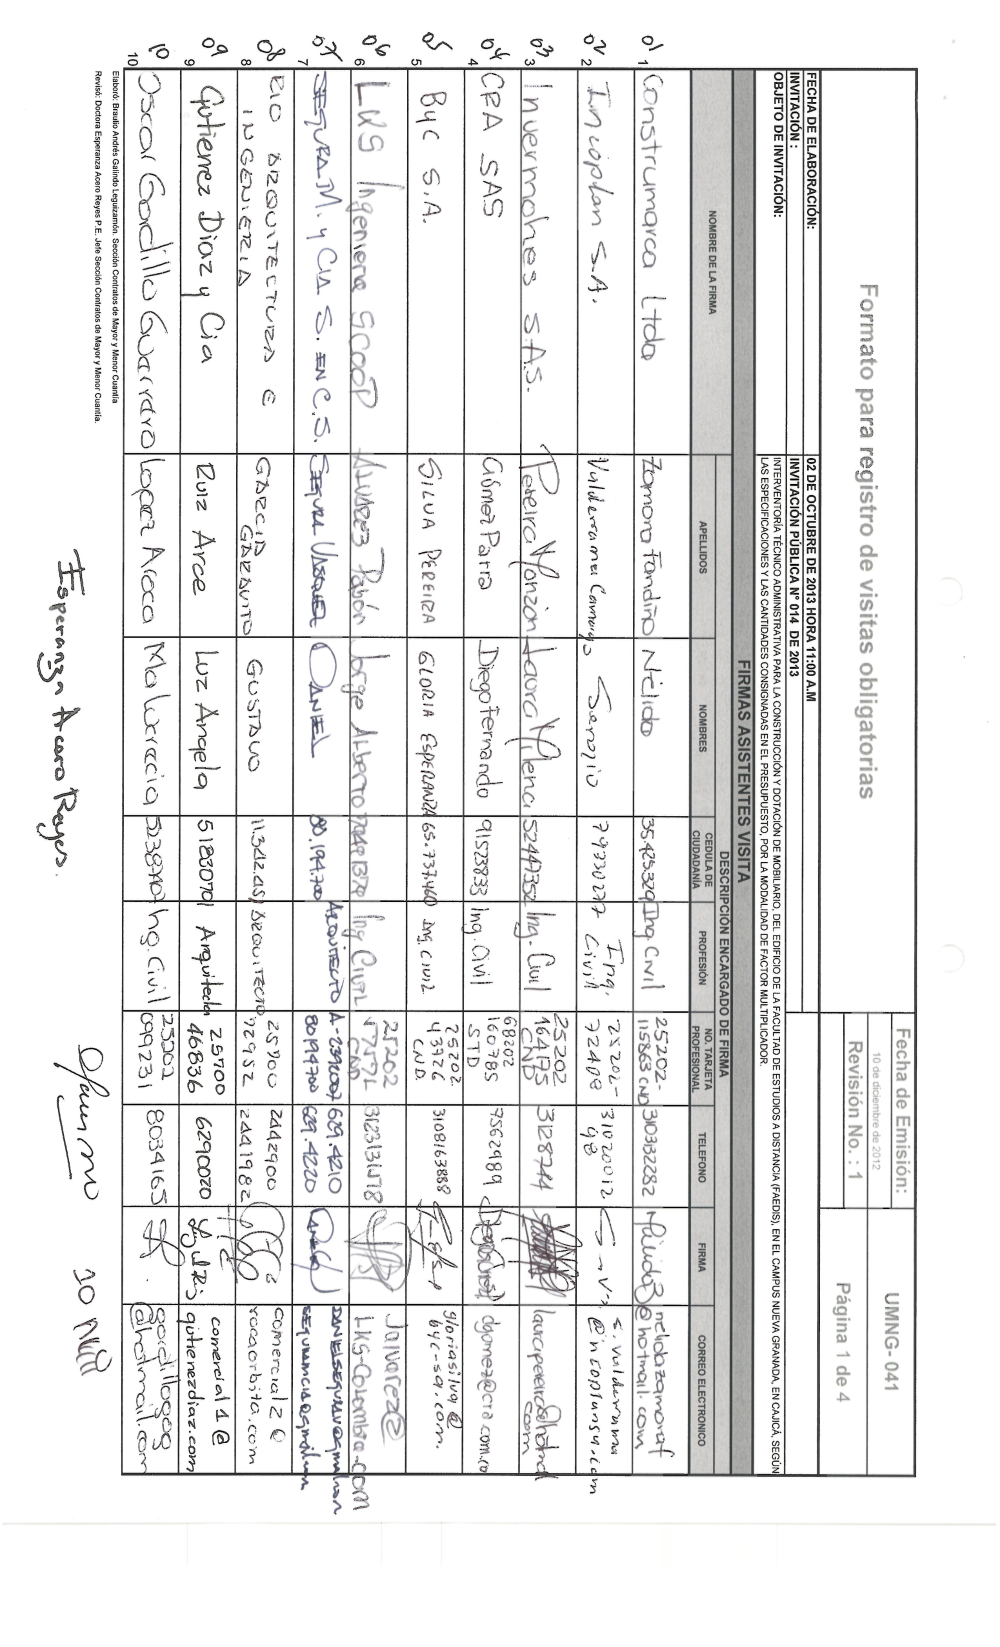 Formato para registro de visitas obligatorias
Fecha de Emisión:
10 de diciembre de 2012
Revisión No. : 1
UMNG- 041
Página 1 de 4
FECHA DE ELABORACIÓN: 02 DE OCTUBRE DE 2013 HORA 11:00 A.M
INVITACIÓN : INVITACIÓN PÚBLICA N° 014 DE 2013
OBJETO DE INVITACIÓN: INTERVENTORÍA TÉCNICO ADMINISTRATIVA PARA LA CONSTRUCCIÓN Y DOTACIÓN DE MOBILIARIO, DEL EDIFICIO DE LA FACULTAD DE ESTUDIOS A DISTANCIA (FAEDIS), EN EL CAMPUS NUEVA GRANADA, EN CAJICÁ, SEGÚN
LAS ESPECIFICACIONES Y LAS CANTIDADES CONSIGNADAS EN EL PRESUPUESTO, POR LA MODALIDAD DE FACTOR MULTIPLICADOR.
FIRMAS ASISTENTES VISITA
DESCRIPCIÓN ENCARGADO DE FIRMA
NOMBRE DE LA FIRMA APELLIDOS NOMBRES CEDULA DE CIUDADANÍA PROFESIÓN NO. TARJETA PROFESIONAL TELEFONO FIRMA CORREO ELECTRONICO
01 1 Construmarca Ltda Zamora Fandiño Nélida 35425329 Ing. Civil 25202- 115863 CND 310332282 nelidazamoraf @hotmail.com
02 2 Incoplan S.A. Valderrama Camargo Sergio 79330277 Ing. Civil 25202- 72408 31020012 98 s.valderrama @incoplansa.com
03 3 Invermohes S.A.S. Pereira Monzón Laura Milena 52447352 Ing. Civil 25202 164175 CND 3128744
04 4 CRA SAS Gómez Parra Diego Fernando 91523833 Ing. Civil 68202 160785 STD 7562989 dgomez@cra.com.co
05 5 ByC S.A. SILVA PEREIRA GLORIA ESPERANZA 65.737.460 Ing CIVIL 25202 43726 CND. 3108163888 gloriasilva@ byc-sa.com.
06 6 LKS Ingenieria SCOOP ALVAREZ Pabón Jorge Alberto Ing CIVIL 25202 CND Jalvarez@ LKS-Colombia.com
07 7 SEGURA M. y CIA S. EN C.S. SEGURA VASQUEZ DANIEL 80.194.700 ARQUITECTO 80194700 629.4210 629.4220
08 8 RIO ARQUITECTURA E INGENIERIA GARCIA GARAVITO GUSTAVO ARQUITECTO 25700 72952 2442900 2441982 comercial2@
09 9 Gutierrez Diaz y Cia Ruiz Arce Luz Angela 51830701 Arquitecta 25700 46836 6290020 comercial1@ gutierrezdiaz.com
10 10 Oscar Gordillo Guarraro Lopez Aroca Ma Lucrecia Ing. Civil 25202 099231 8034165 gordillogog @hotmail.com
Elaboró: Braulio Andrés Galindo Leguizamón. Sección Contratos de Mayor y Menor Cuantía
Revisó: Doctora Esperanza Acero Reyes P.E. Jefe Sección Contratos de Mayor y Menor Cuantía.
Esperanza Acero Reyes.